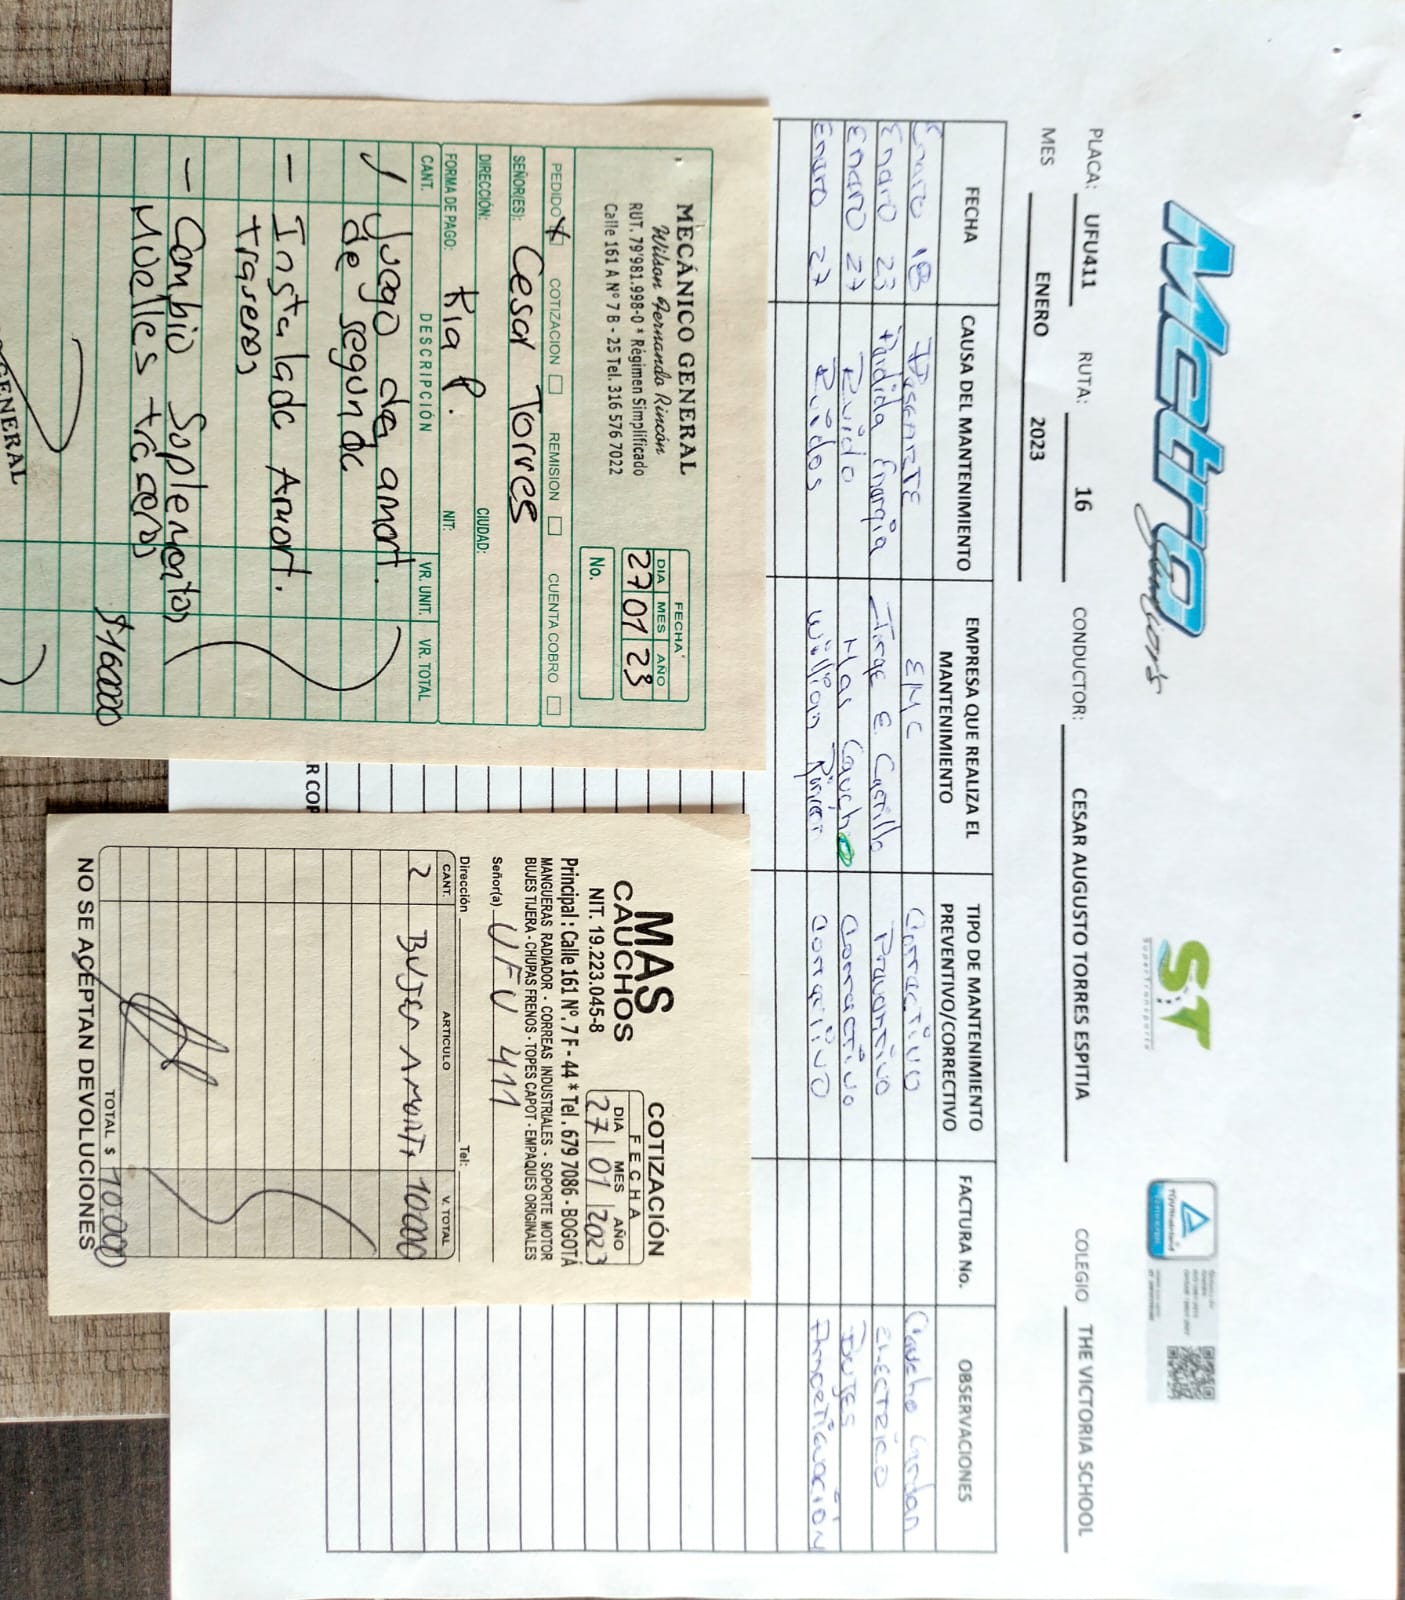 Metro
Juniors
ST
SuperTransporte
TÜVRheinland
CERTIFIED
PLACA: UFU411 RUTA: 16 CONDUCTOR: CESAR AUGUSTO TORRES ESPITIA COLEGIO THE VICTORIA SCHOOL
MES ENERO 2023
FECHA CAUSA DEL MANTENIMIENTO EMPRESA QUE REALIZA EL MANTENIMIENTO TIPO DE MANTENIMIENTO PREVENTIVO/CORRECTIVO FACTURA No. OBSERVACIONES
Enero 18 Desgaste EMC Correctivo Caucho Cardan
Enero 23 Perdida Energia Jorge E Castillo Preventivo ELECTRICO
Enero 27 Ruido Mas Cauchos Correctivo Bujes
Enero 27 Ruidos William Rincon Correctivo Amortiguación
R COP
MECÁNICO GENERAL
Wilson Fernando Rincón
RUT. 79'981.998-0 * Régimen Simplificado
Calle 161 A Nº 7 B - 25 Tel. 316 576 7022
FECHA
DIA MES AÑO
27 01 23
No.
PEDIDO X COTIZACION REMISION CUENTA COBRO
SEÑOR(ES): Cesar Torres
DIRECCIÓN: CIUDAD:
FORMA DE PAGO: Kia P. NIT:
CANT. DESCRIPCIÓN VR. UNIT. VR. TOTAL
1 Juego de amort.
de segunda
- Instalado Amort.
traseros
- Cambio Soplementos
Muelles traseros
$160000
GENERAL
MAS
CAUCHOS
NIT. 19.223.045-8
COTIZACIÓN
FECHA
DIA MES AÑO
27 01 2023
Principal : Calle 161 Nº. 7 F - 44 * Tel . 679 7086 - BOGOTÁ
MANGUERAS RADIADOR - CORREAS INDUSTRIALES - SOPORTE MOTOR
BUJES TIJERA - CHUPAS FRENOS - TOPES CAPOT - EMPAQUES ORIGINALES
Señor(a) UFU 411
Dirección Tel:
CANT. ARTICULO V. TOTAL
2 BUJES AMORT. 10000
TOTAL $ 10.000
NO SE ACEPTAN DEVOLUCIONES